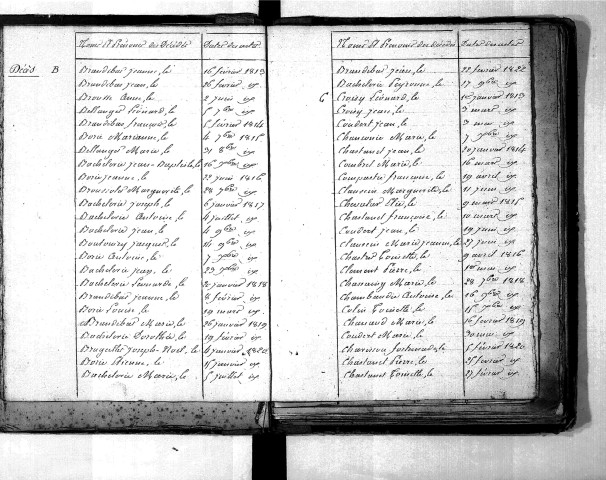 Noms et Prénoms des Décédés Dates des actes
Décès B Brandebar jeanne, le 16 février 1813
Brandebar jean, le 26 février id
Broutte Anne, le 2 juin id
Bellanger Léonard, le 5 7bre id
Brandebar françois, le 5 février 1814
Borie Marianne, le 4 7bre 1815
Bellanger Marie, le 31 8bre id
Bachelerie jean-Baptiste, le 16 9bre id
Borie jeanne, le 22 juin 1816
Broussole Marguerite, le 28 7bre id
Bachelerie joseph, le 6 janvier 1817
Bachelerie Antoine, le 4 juillet id
Bachelerie jean, le 4 9bre id
Boutoury jacques, le 14 9bre id
Borie Antoine, le 7 id
Bachelerie jean, le 23 id
Bachelerie Léonarde, le 2 janvier 1818
Brandebar jeanne, le 8 février id
Borie Louise, le 19 mars id
Brandebar Marie, le 26 janvier 1819
Bachelerie Dorothée, le 19 février id
Brugeille joseph-Noël, le 4 janvier 1820
Borie Etienne, le 15 janvier id
Bachelerie Marie, le 5 juillet id
Noms et Prénoms des décédés Dates des actes
Brandebar jean, le 22 février 1822
Bachelerie Peyronne, le 17 9bre id
C Croisy Léonard, le janvier 1813
Croisy jean, le 3 mars id
Coudert jean, le 3 mai id
Chauconie Marie, le 7 id
Chastanet jean, le 20 janvier 1814
Combret Marie, le 16 mars id
Compastie françoise, le 19 avril id
Claussin Marguerite, le 11 juin id
Chevalier Elie, le 9 mars 1815
Chastanet françoise, le 10 mars id
Coudert jean, le 19 juin id
Claussin Marie jeanne, le 27 juin id
Chastre Toinette, le 9 avril 1816
Clement Pierre, le 1er mai id
Marie, le 28 1818
Chambaudie Antoine, le 16 9bre id
Toinette, le 15 id
Chanaud Marie, le 16 février 1819
Coudert Marie, le 30 mai id
le 5 février 1820
Chastanet Pierre, le 25 février id
Chastanet Toinette, le 27 février id